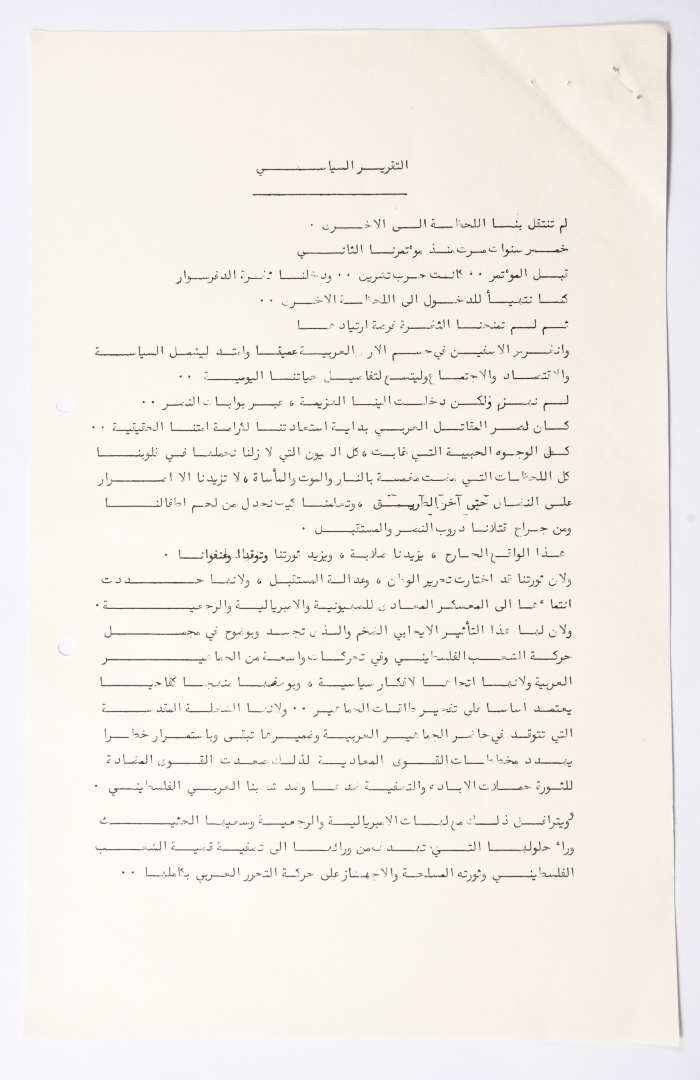 التقرير السياسي
لم تنتقل بنا اللحظة الى الاخرى .
خمس سنوات مرت منذ مؤتمرنا الثاني
قبل المؤتمر ٠٠ كانت حرب تشرين ٠٠ ودخلنا ثغرة الدفرسوار
كنا نتهيأ للدخول الى اللحظة الاخرى ٠٠
ثم لم تمنحنا الثغرة فرصة ارتيادها
وانغرس الاسفين في جسم الارض العربية عميقا وامتد ليشمل السياسة
والاقتصاد والاجتماع وليتسع لتفاصيل حياتنا اليومية ٠٠
لم نهزم ولكن دخلت الينا الهزيمة ، عبر بوابات النصر ٠٠
كان نصر المقاتل العربي بداية استعادتنا لكرامة امتنا الحقيقية ٠٠
كل الوجوه الحبيبة التي غابت ، كل العيون التي لا زلنا نحملها في قلوبنا
كل اللحظات التي مضت مغمسة بالنار والموت والمأساة ، لا تزيدنا الا اصرار
على النضال حتى آخر الطريق ، وتعلمنا كيف نجدل من لحم اطفالنا
ومن جراح قتلانا دروب النصر والمستقبل .
هذا الواقع الجارح ، يزيدنا صلابة ، ويزيد ثورتنا وتوقدا وعنفوانا .
ولان ثورتنا قد اختارت تحرير الوطن ، وعدالة المستقبل ، ولانها حددت
انتماءها الى المعسكر المعادى للصهيونية والامبريالية والرجعية .
ولان لها هذا التأثير الايجابي الضخم والذى تجسد وبوضوح في مجمل
حركة الشعب الفلسطيني وفي تحركات واسعة من الجماهير
العربية ولانها اتجاها لافكار سياسية ، وبوصفها منهجا كفاحيا
يعتمد اساسا على تفجير طاقات الجماهير ٠٠ ولانها الشعلة المقدسة
التي تتوقد في حاضر الجماهير العربية وضميرها تبقى وباستمرار خطرا
يهدد مخططات القوى المعادية لذلك صعدت القوى المضادة
للثورة حملات الاباده والتصفية ضدها وضد شعبنا العربي الفلسطيني .
ويترافق ذلك مع لهاث الامبريالية والرجعية وسعيها الحثيث
وراء حلولها التي تهدف من ورائها الى تصفية قضية الشعب
الفلسطيني وثورته المسلحة والاجهاز على حركة التحرر العربي بكاملها ٠٠